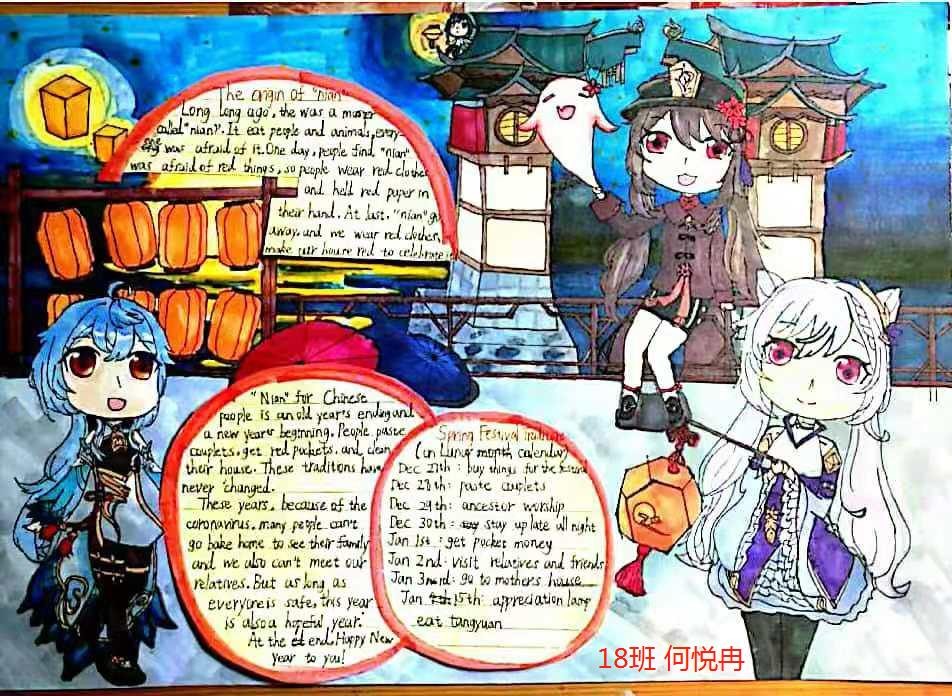 The origin of "nian"
Long long ago, the was a monster
called "nian". It eat people and animals, every-
one was afraid of it. One day, people find "nian"
was afraid of red things, so people wear red clothes
and held red paper in
their hand. At last, "nian" go
away. and we wear red clothes,
make our house red to celebrate it
"Nian" for Chinese
people is an old year's ending and
a new year's beginning. People paste
couplets, get red pockets, and clean
their house. These traditions have
never changed.
These years, because of the
coronavirus, many people can't
go bake home to see their family
and we also can't meet our
relatives. But as long as
everyone is safe, this year
is also a hopeful year.
At the end, Happy New
Year to you!
Spring Festival
(in Lunar month calendar)
Dec 27th: buy things for the festival
Dec 28th: paste couplets
Dec 29th: ancestor worship
Dec 30th: stay up late all night
Jan 1st: get pocket money
Jan 2nd: visit relatives and friends
Jan 3rd: go to mother's house
Jan 15th: appreciation lamp
eat tangyuan
18班 何悦冉